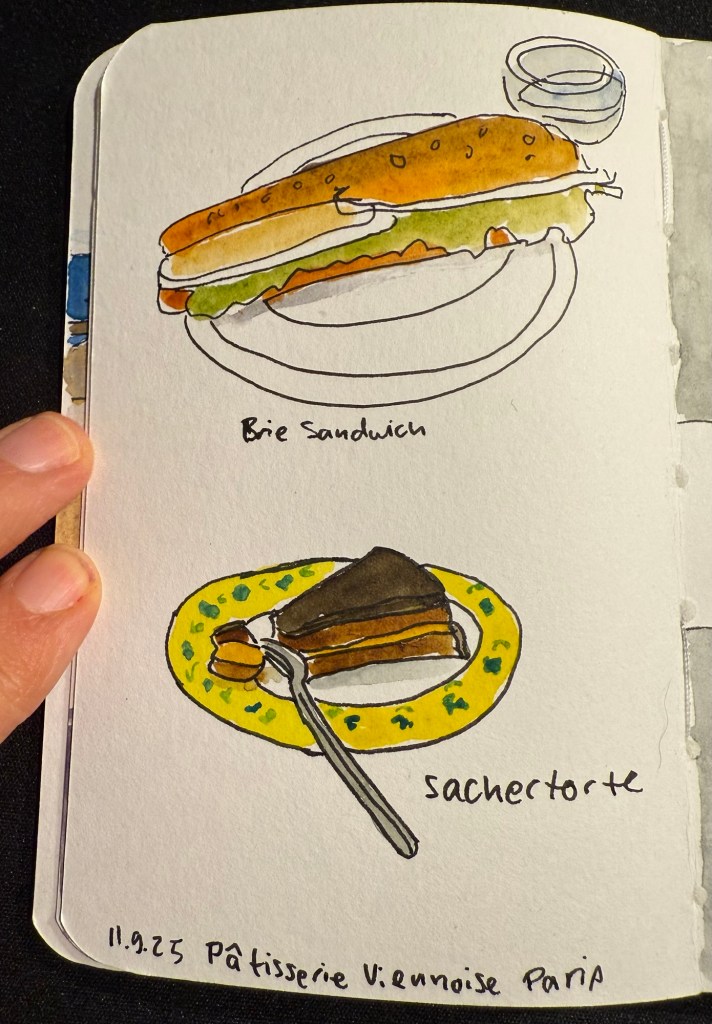 Brie Sandwich
sachertorte
11.9.25 Pâtisserie Viennoise Paris